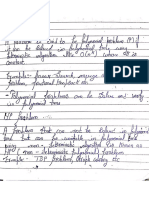 A problem is said to be polynomial problem (P) if
it can be solved in polynomial time using
deterministic algorithm like O(n^k) where k is
constant
Example - Linear Search, merge
problem, fractional knapsack etc
- Polynomial problems can be solved and verify
in polynomial time
NP Problem
A Problem that can not be solved in polynomial
but can be verified in polynomial time
non - deterministic algorithm is known as
NP (non - deterministic polynomial) problem
Example - TSP problem, graph coloring etc